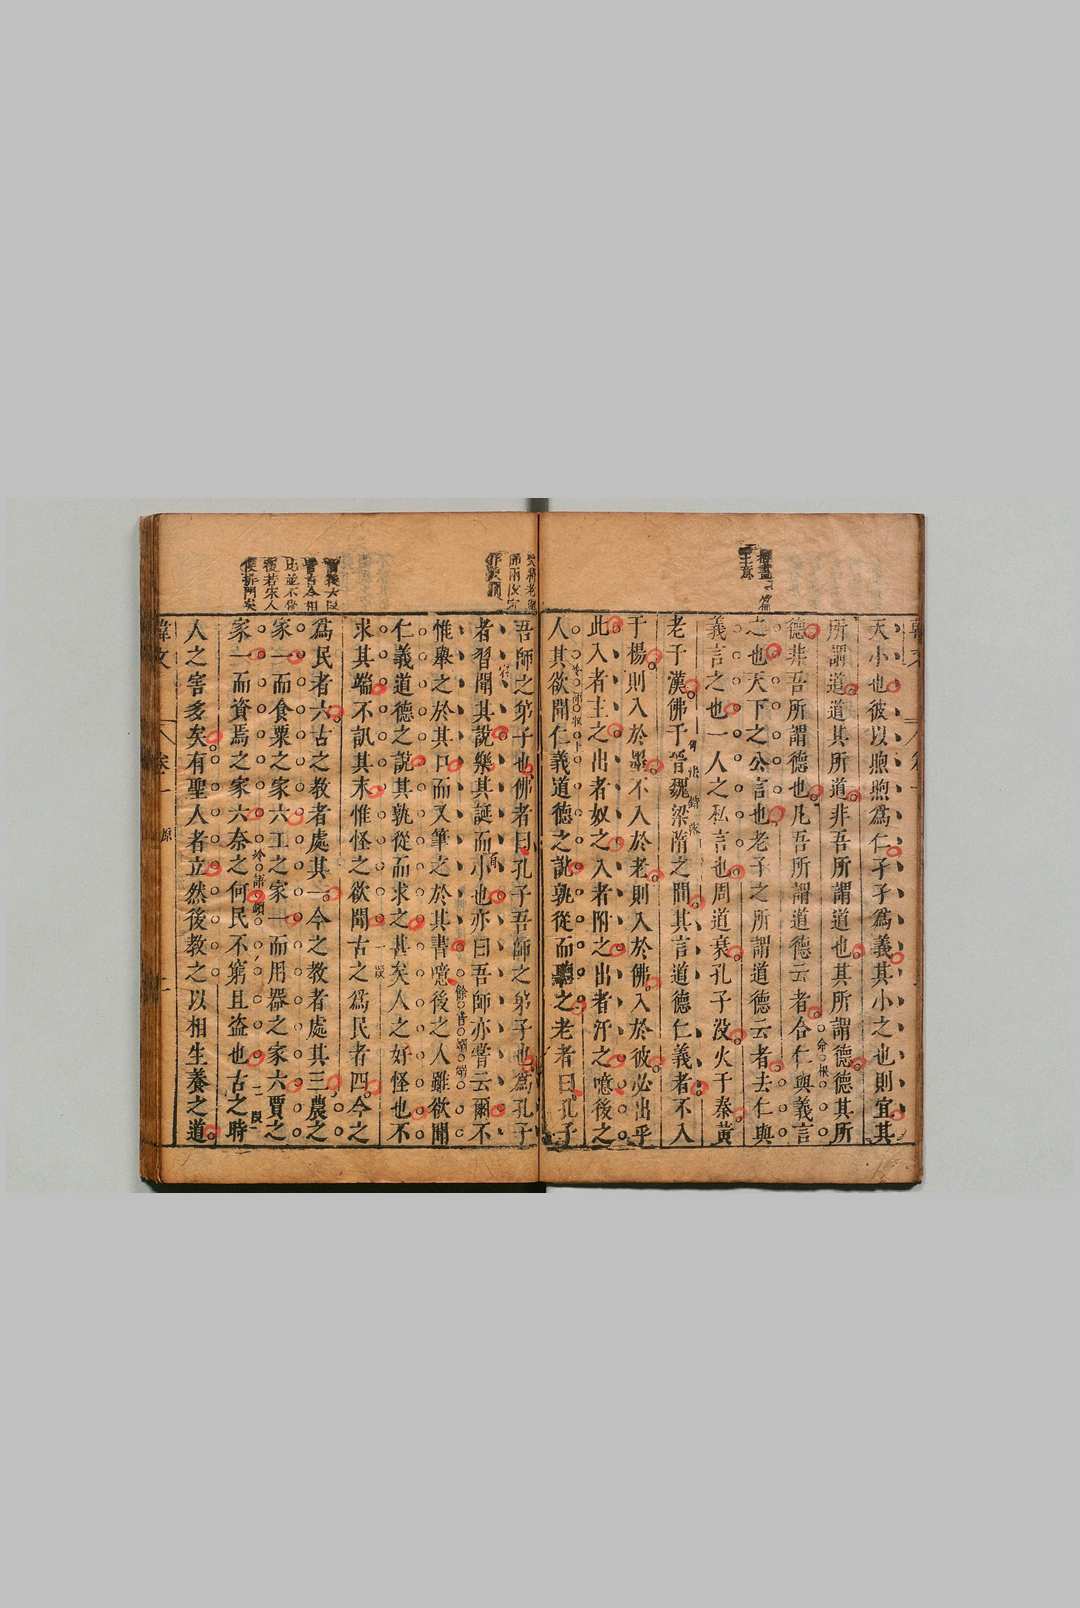 天小也彼以煦煦為仁孑孑為義其小之也則宜其
所謂道道其所道非吾所謂道也其所謂德德其所
德非吾所謂德也凡吾所謂道德云者合仁與義言
之也天下之公言也老子之所謂道德云者去仁與
義言之也一人之私言也周道衰孔子没火于秦黃
老于漢佛于晉魏梁隋之間其言道德仁義者不入
于楊則入於墨不入於老則入於佛入於彼必出乎
此入者主之出者奴之入者附之出者汙之噫後之
人其欲聞仁義道德之說孰從而聽之老者曰孔子
吾師之弟子也佛者曰孔子吾師之弟子也為孔子
者習聞其說樂其誕而小也亦曰吾師亦嘗云爾不
惟舉之於其口而又筆之於其書噫後之人雖欲聞
仁義道德之說其孰從而求之甚矣人之好怪也不
求其端不訊其末惟怪之欲聞古之為民者四今之
為民者六古之教者處其一今之教者處其三農之
家一而食粟之家六工之家一而用器之家六賈之
家一而資焉之家六奈之何民不窮且盜也古之時
人之害多矣有聖人者立然後教之以相生養之道
韓文
卷一
原